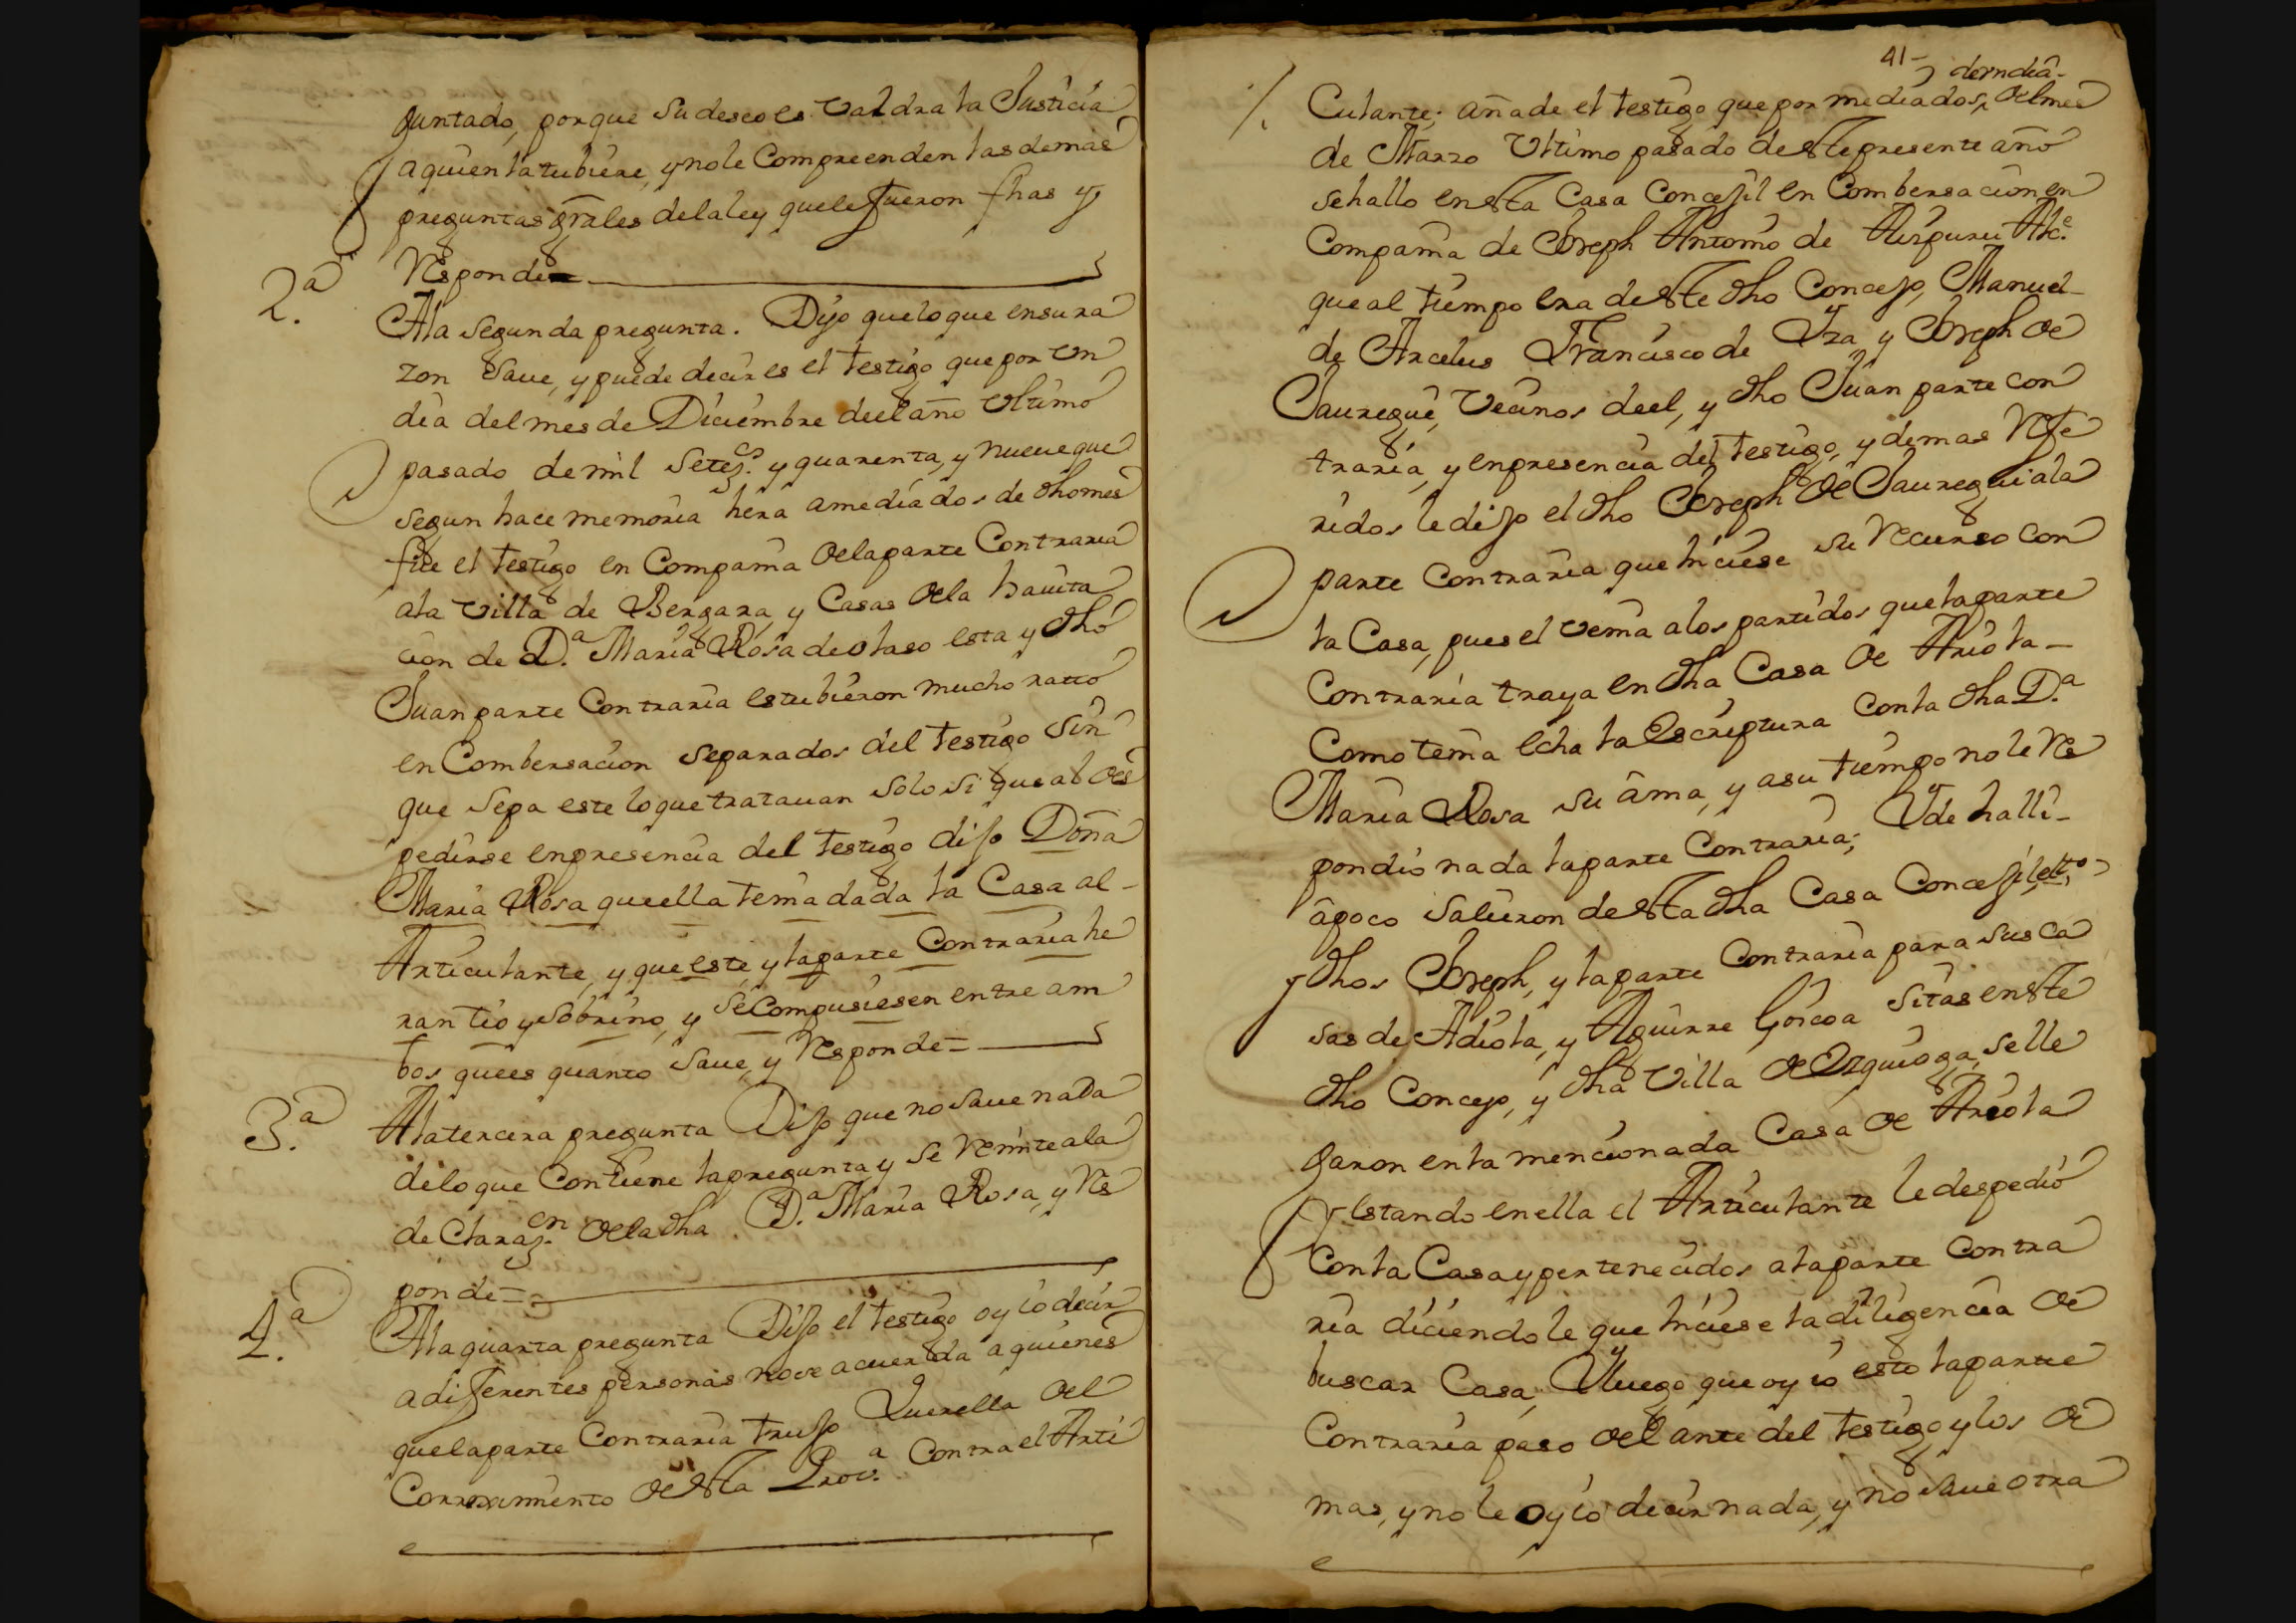 guntado, porque su deseo es valdra la Justicia
a quien la tubiere, y no le Compreenden las demas
preguntas grales de la ley que le fueron fhas y
Responde=
2.a
A la segunda pregunta. Dijo que lo que en su ra
zon save, y puede decir es el testigo que por un
dia del mes de Diciembre de el año ultimo
pasado de mil setez.os y quarenta, y nueve que
segun hace memoria hera a mediados de dho mes
fue el testigo en Compañia de la parte Contraria
a la villa de Bergara, y Casas de la havita
cion de D.a Maria Rosa de olaso esta y dho
Juan parte Contraria estubieron mucho ratto
en Combersacion separados del testigo sin
que sepa este lo que tratavan solo si que al des
pedirse en presencia del testigo dijo Doña
Maria Rosa que ella tenia dada la Casa al-
Articulante, y que este, y la parte Contraria he
ran tio y sobrino, y se Compusiesen entre am
bos que es quanto save, y Responde=
3.a
A la tercera pregunta Dijo que no save nada
de lo que Contiene la pregunta y se remite a la
de Claraz.on de la dha D.a Maria Rosa, y Res
ponde=
4.a
A la quarta pregunta Dijo el testigo oyio decir
a diferentes personas no se acuerda a quienes
que la parte Contraria trujo Querella del
Corregimiento de esta Prov.a Contra el Arti
41-
Culante; añade el testigo que por mediados, del mes
de Marzo Ultimo pasado de este presente año
se hallo en esta Casa Concejil en Combersacion en
Compañia de Joseph Antonio de Aizpuru Alc.e
que al tiempo era de este dho Concejo, Manuel-
de Arcelus Francisco de Yza, y Joseph de
Jauregui, Vecinos de el, y dho Juan parte con
traria, y en presencia del testigo, y demas Refe
ridos le dijo el dho Joseph de Jauregui a la
parte Contraria que hiciese su recurso con
la Casa, pues el venia a los partidos que la parte
Contraria traya en dha Casa de Ariola-
Como tenia echa la Escriptura con la dha D.a
Maria Rosa su ama, y a su tiempo no le Res
pondio nada la parte Contraria; Y de halli-
a poco salieron de esta dha Casa Concejil
y dhos Joseph, y la parte Contraria para sus Ca
sas de Adiola, y Aguirre Goicoa sitas en este
dho Concejo, y dha Villa de Ezquioga, se lle
garon en la mencionada Casa de Ariola
y estando en ella el Articulante le despedio
con la Casa y pertenecidos a la parte Contra
ria diciendole que hiciese la diligencia de
buscar Casa, Y luego que oyio esto la parte
Contraria paso delante del testigo y los de
mas, y no le oyio decir nada, y no save otra